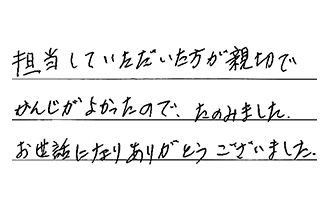 担当していただいた方が親切で
かんじがよかったので、たのみました.
お世話になりありがとうございました.